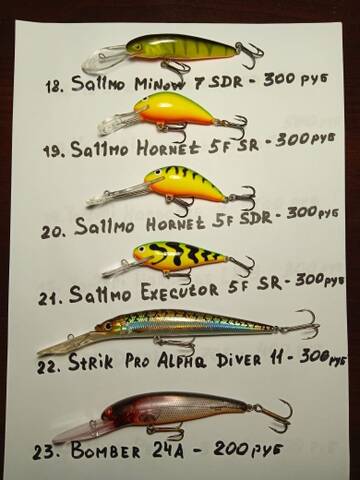 18. Sallmo Minow 7 SDR - 300 руб
19. Sallmo Hornet 5F SR - 300 руб
20. Sallmo Hornet 5F SDR - 300 руб
21. Sallmo Executor 5F SR - 300 руб
22. Strik Pro Alpha Diver 11 - 300 руб
23. Bomber 24A - 200 руб